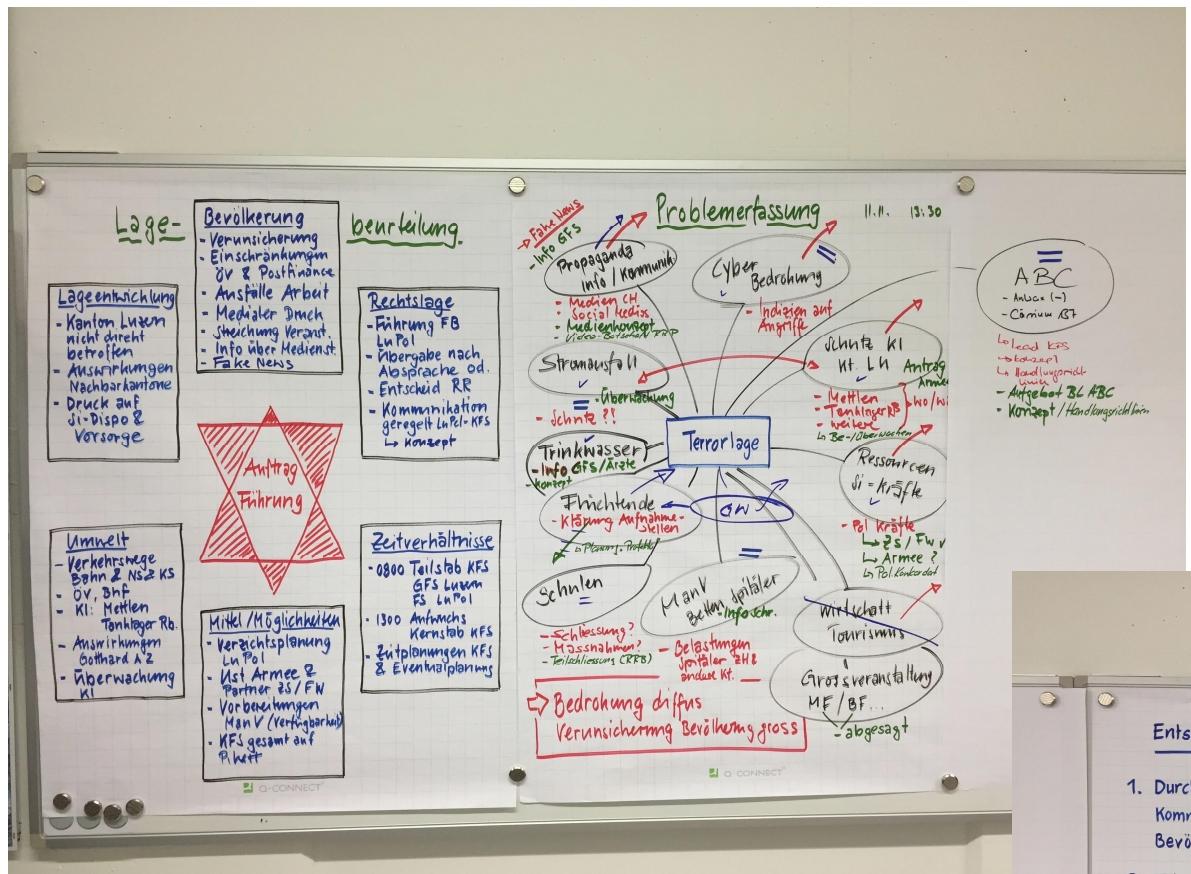 Lage-
beurteilung.
Bevölkerung
- Verunsicherung
- Einschränkungen
ÖV & Postfinance
- Ausfälle Arbeit
- Medialer Druck
- Streichung Veranst.
- Info über Medienst.
- Fake News
Lageentwicklung
- Kanton Luzern
nicht direkt
betroffen
- Auswirkungen
Nachbarkantone
- Druck auf
Si-Dispo &
Vorsorge
Rechtslage
- Führung FB
LuPol
- Übergabe nach
Absprache od.
- Entscheid RR
- Kommunikation
geregelt LuPol-KFS
↳ Konzept
Auftrag
Führung
Umwelt
- Verkehrswege
Bahn & NS & KS
- ÖV, Bhf
- KI: Mettlen
Tanklager Rb.
- Auswirkungen
Gotthard A2
- Überwachung
KI
Mittel/Möglichkeiten
- Verzichtsplanung
LuPol
- Ust Armee &
Partner ZS/FW
- Vorbereitungen
ManV (Verfügbarkeit)
- KFS gesamt auf
Pikett
Zeitverhältnisse
- 0800 Teilstab KFS
GFS Luzern
FS LuPol
- 1300 Aufwuchs
Kernstab KFS
- Zeitplanungen KFS
& Eventualplanung
Q-CONNECT
Problemerfassung
11.11. 13:30
→ Fake News
- Info GFS
Propaganda
Info / Kommunik.
- Medien CH
- Social Media
- Medienkonzept
Cyber
Bedrohung
- Indizien auf
Angriffe
Stromausfall
- Überwachung
- Schutz ?!
Schutz KI
Kt. LU
Antrag
- Mettlen
- Tanklager RB
- weitere
↳ Be-/Überwachen
Terrorlage
Trinkwasser
- Info GFS/Ärzte
- Konzept
Flüchtende
- Klärung Aufnahme-
stellen
Ressourcen
Si-Kräfte
- Pol Kräfte
↳ ZS / FW
↳ Armee ?
↳ Pol. Konkordat
Schulen
- Schliessung?
- Massnahmen?
- Teilschliessung (RRB)
ManV
Betten Spitäler
- Info Schr.
- Belastungen
Spitäler ZH &
andere Kt.
Wirtschaft
Tourismus
Grossveranstaltung
MF / BF...
- abgesagt
⇒ Bedrohung diffus
Verunsicherung Bevölkerung gross
Q-CONNECT
ABC
- Anthrax (-)
- Cäsium 137
↳ Lead KFS
↳ Konzept
↳ Handlungsricht
linien
- Aufgebot BL ABC
- Konzept / Handlungsrichtlinien
Ents
1. Durc
Komm
Bevö